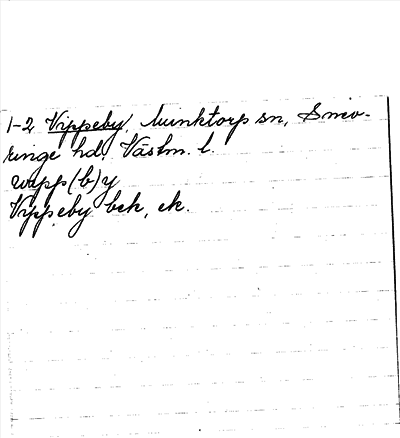 1-2 Vippeby, Munktorp sn, Snev-
ringe hd. Västm. l.
wipp(b)y
Vippeby bek, ek.